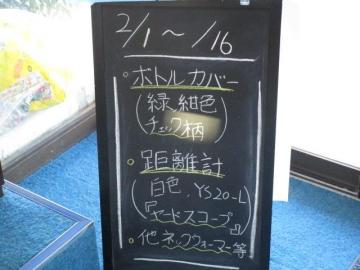 2/1～/16
・ボトルカバー
(緑,紺色
チェック柄)
・距離計
(白色、YS20-L
『ヤードスコープ』)
・他ネックウォーマー等